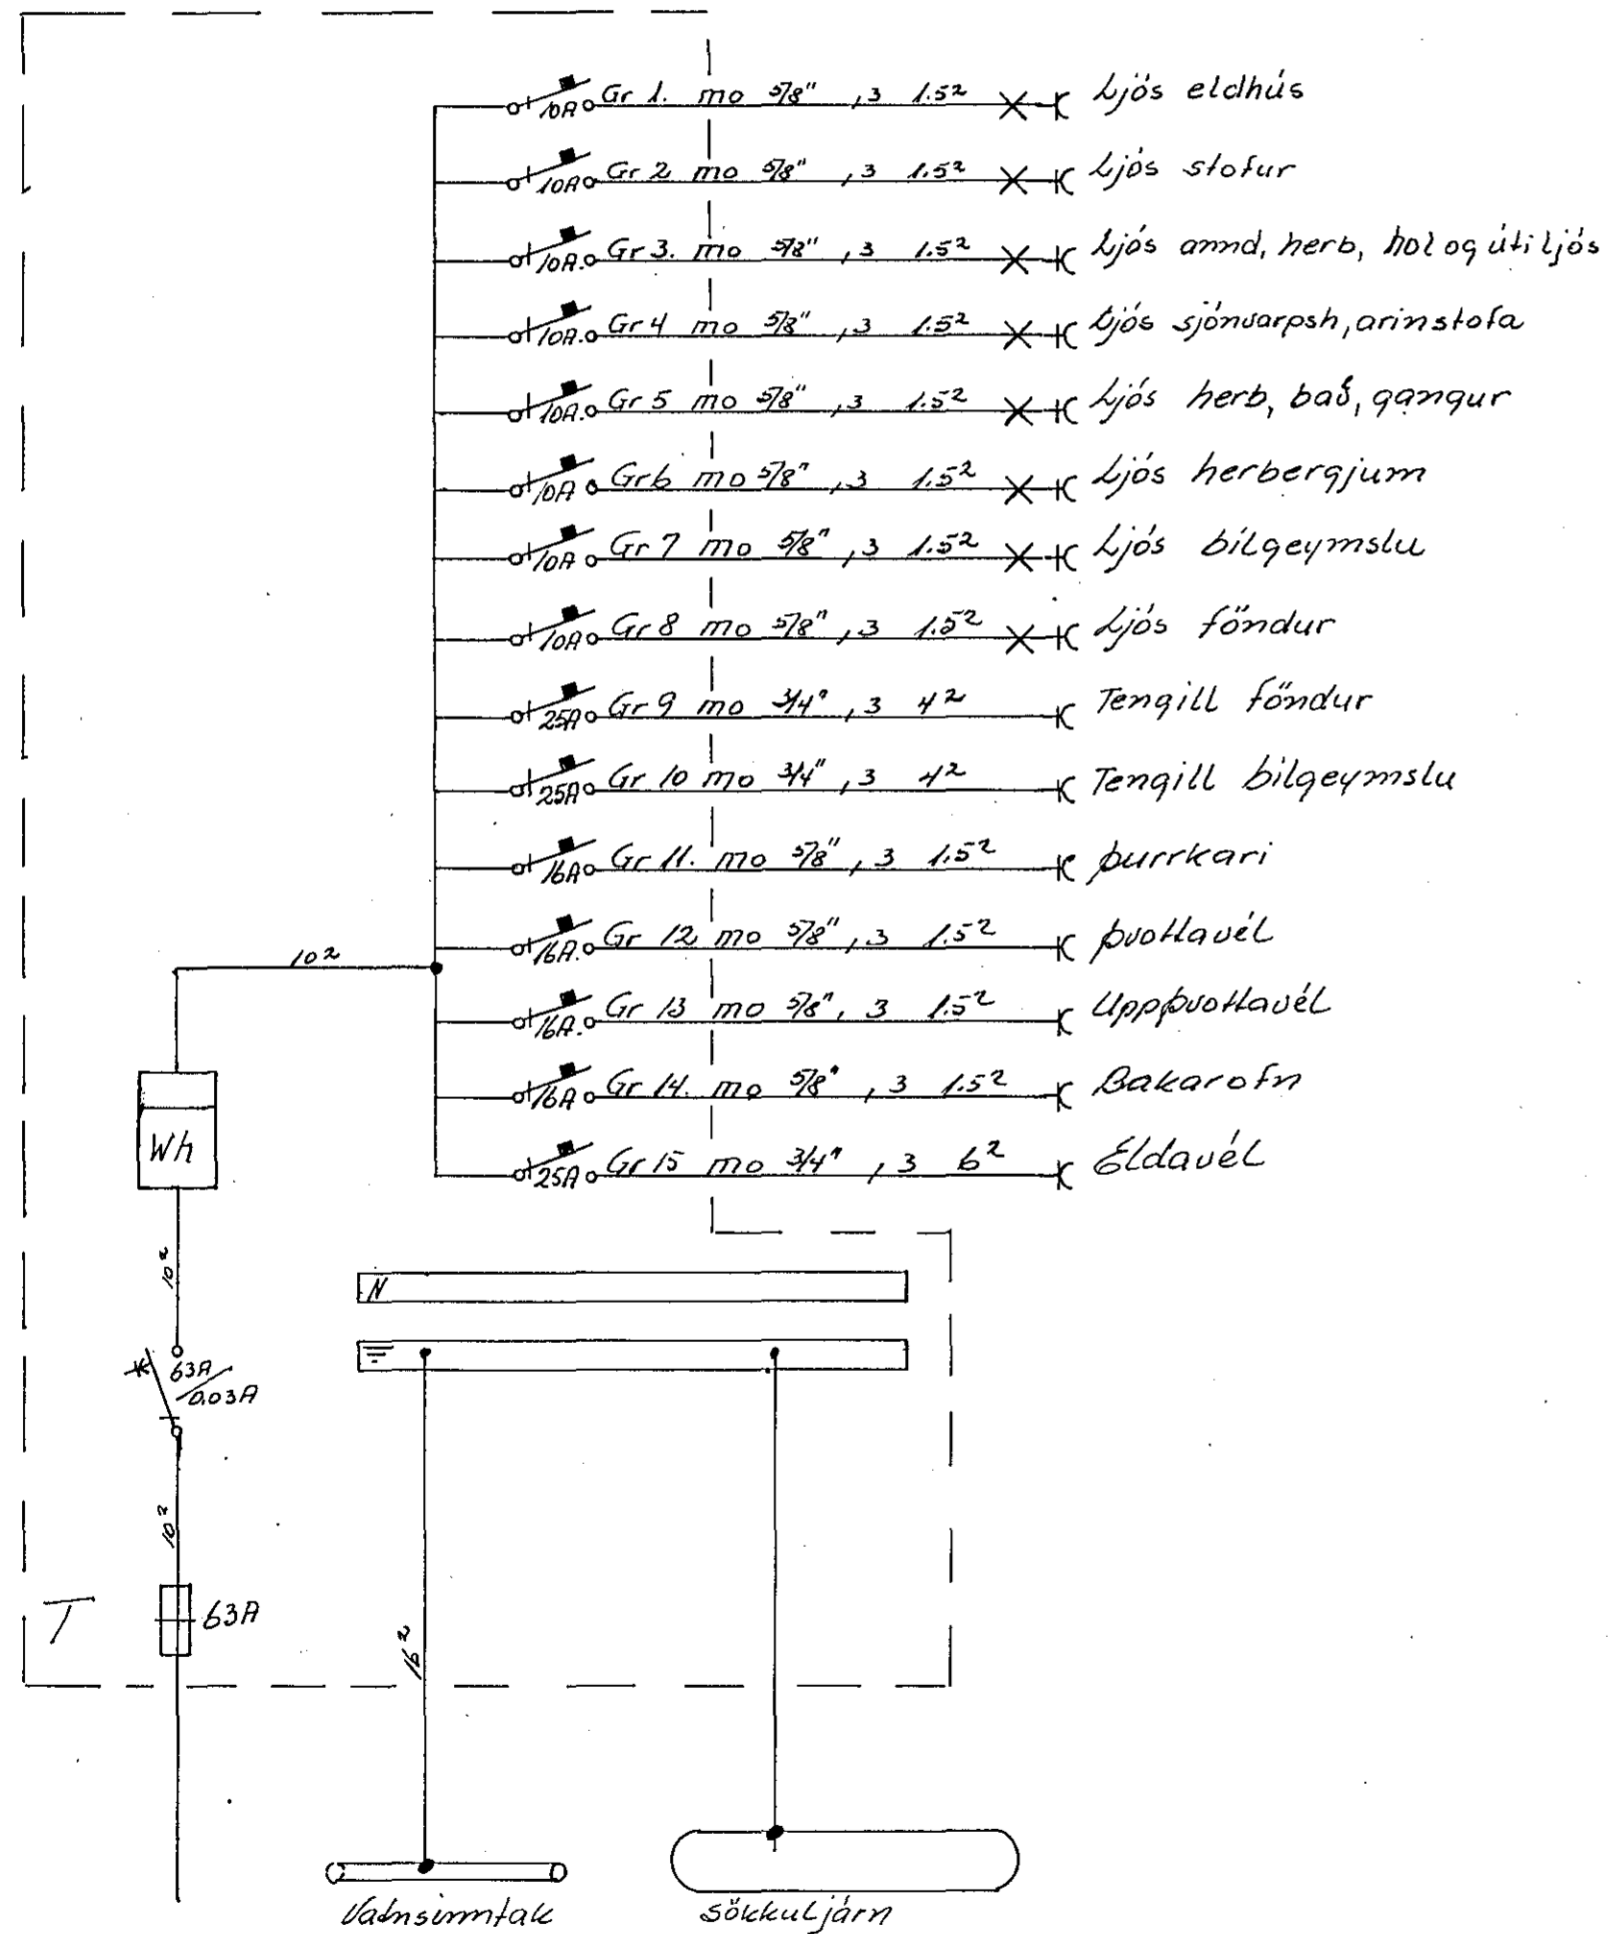 10A Gr 1. mo 5/8", 3 1.5² Ljós eldhús
10A Gr 2 mo 5/8", 3 1.5² Ljós stofur
10A. Gr 3. mo 5/8", 3 1.5² Ljós annd, herb, hol og útiljós
10A. Gr 4 mo 5/8", 3 1.5² Ljós sjónvarpsh, arinstofa
10A. Gr 5 mo 5/8", 3 1.5² Ljós herb, bað, gangur
10A Gr 6 mo 5/8", 3 1.5² Ljós herbergjum
10A Gr 7 mo 5/8", 3 1.5² Ljós bílgeymslu
10A Gr 8 mo 5/8", 3 1.5² Ljós föndur
25A Gr 9 mo 3/4", 3 4² Tengill föndur
25A Gr 10 mo 3/4", 3 4² Tengill bílgeymslu
16A Gr 11. mo 5/8", 3 1.5² þurrkari
16A. Gr 12 mo 5/8", 3 1.5² þvottavél
10²
16A. Gr 13 mo 5/8", 3 1.5² Uppþvottavél
16A Gr 14. mo 5/8", 3 1.5² Bakarofn
25A Gr 15 mo 3/4", 3 6² Eldavél
Wh
10²
N
63A/0.03A
10²
T 63A
16²
Vatnsinntak
Sökkuljárn